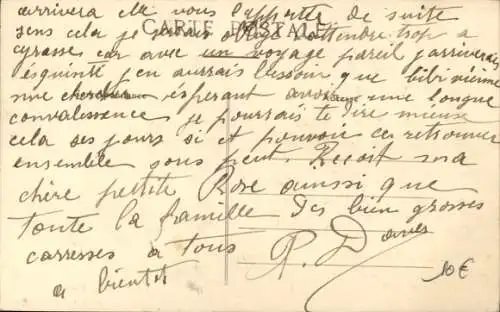 arrivera elle vous l'apporte de suite
CARTE POSTALE
sens cela je serais obligé d'attendre trop a
grasse car avec un voyage pareil j'arriverais
ésquinté j'en aurais bessoin que bibi vienne
me chercher ésperant avoir une longue
convalessence je pourrais te dire mieux
cela ses jours si et pouvoir ce retrouver
ensemble sous peut. Recoit ma
chère petite Rose aussi que
toute la famille les bien grosses
carresses a tous
a bientôt
10€